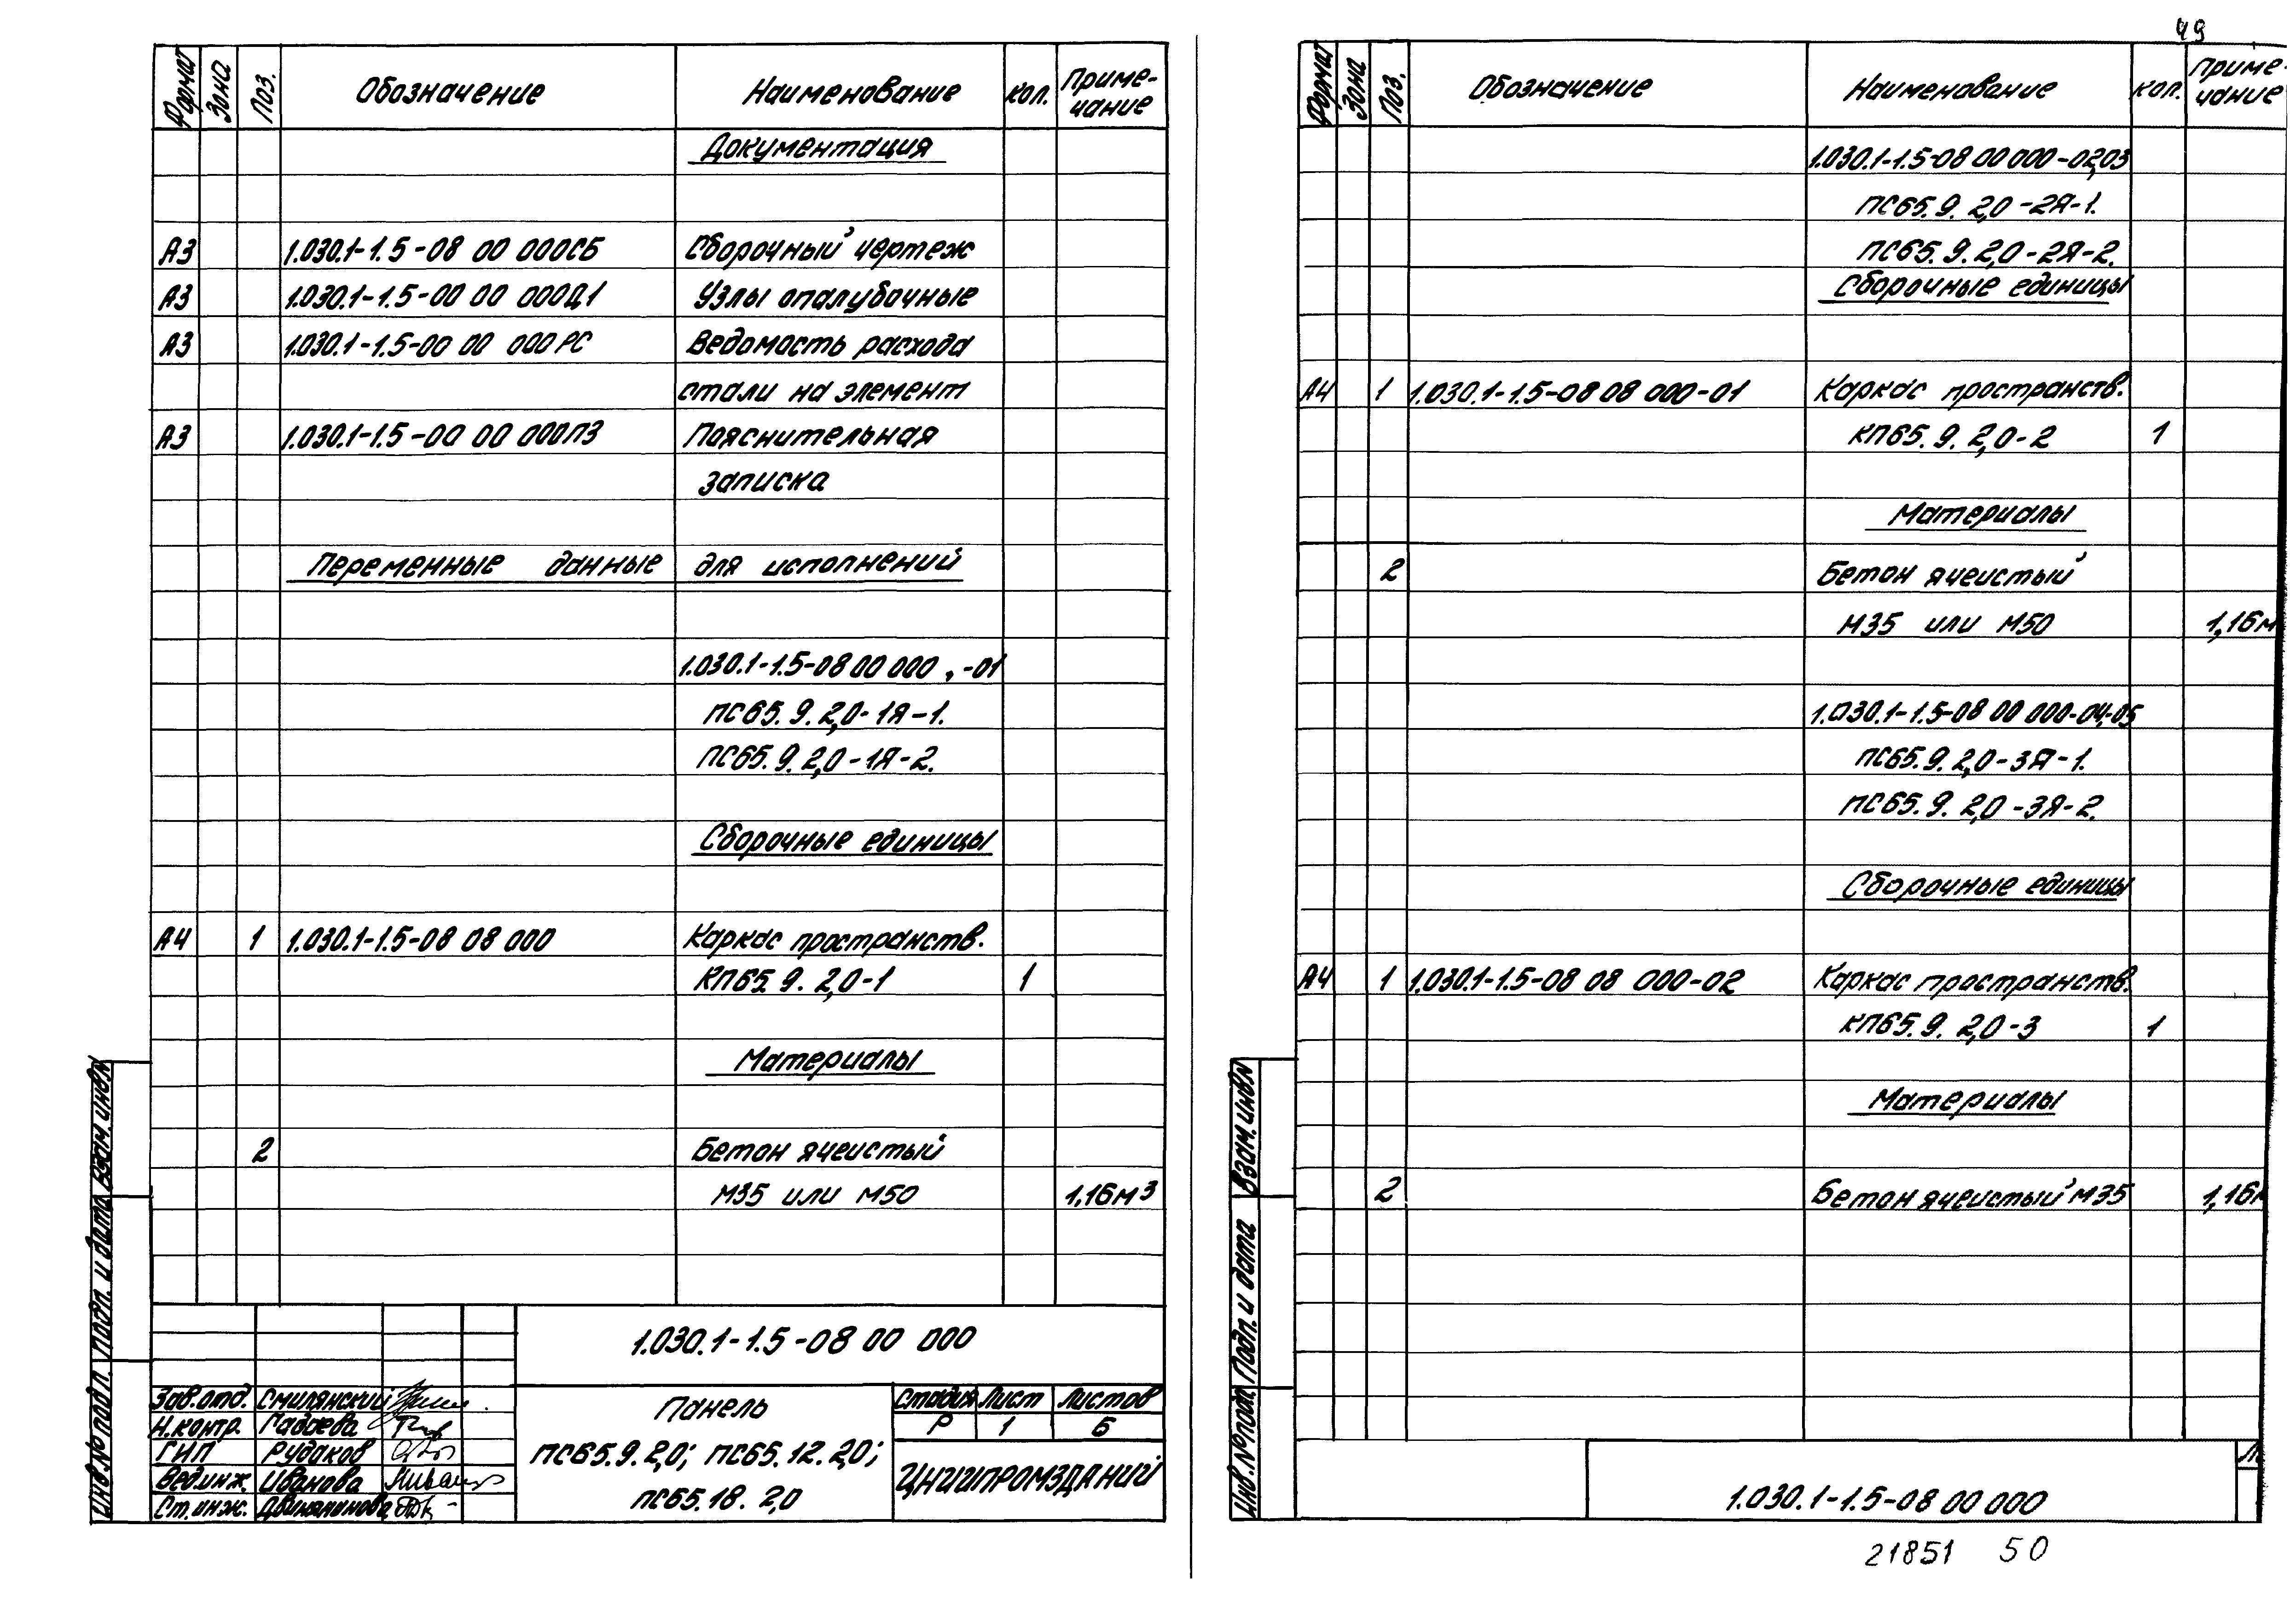 49
Формат Зона Поз. Обозначение Наименование Кол. Приме-
чание
Документация
А3 1.030.1-1.5-08 00 000СБ Сборочный чертеж
А3 1.030.1-1.5-00 00 000Д1 Узлы опалубочные
А3 1.030.1-1.5-00 00 000РС Ведомость расхода
стали на элемент
А3 1.030.1-1.5-00 00 000ПЗ Пояснительная
записка
Переменные данные для исполнений
1.030.1-1.5-08 00 000, -01
ПС65.9.2,0-1Я-1.
ПС65.9.2,0-1Я-2.
Сборочные единицы
А4 1 1.030.1-1.5-08 08 000 Каркас пространств.
КП65.9.2,0-1 1
Материалы
2 Бетон ячеистый
М35 или М50 1,16м³
1.030.1-1.5-08 00 000
Зав.отд. Смилянский
Н.контр.
ГИП Рудаков
Вед.инж. Иванова
Ст.инж.
Панель
ПС65.9.2,0; ПС65.12.2,0;
ПС65.18.2,0
Стадия Лист Листов
Р 1 6
ЦНИИПРОМЗДАНИЙ
Инв.№подл. Подп. и дата Взам.инв№
Формат Зона Поз. Обозначение Наименование Кол. Приме-
чание
1.030.1-1.5-08 00 000-02,03
ПС65.9.2,0-2Я-1.
ПС65.9.2,0-2Я-2.
Сборочные единицы
А4 1 1.030.1-1.5-08 08 000-01 Каркас пространств.
КП65.9.2,0-2 1
Материалы
2 Бетон ячеистый
М35 или М50 1,16м
1.030.1-1.5-08 00 000-04,-05
ПС65.9.2,0-3Я-1.
ПС65.9.2,0-3Я-2.
Сборочные единицы
А4 1 1.030.1-1.5-08 08 000-02 Каркас пространств.
КП65.9.2,0-3 1
Материалы
2 Бетон ячеистый М35 1,16м
1.030.1-1.5-08 00 000
Инв.№подл. Подп. и дата Взам.инв№
21851 50